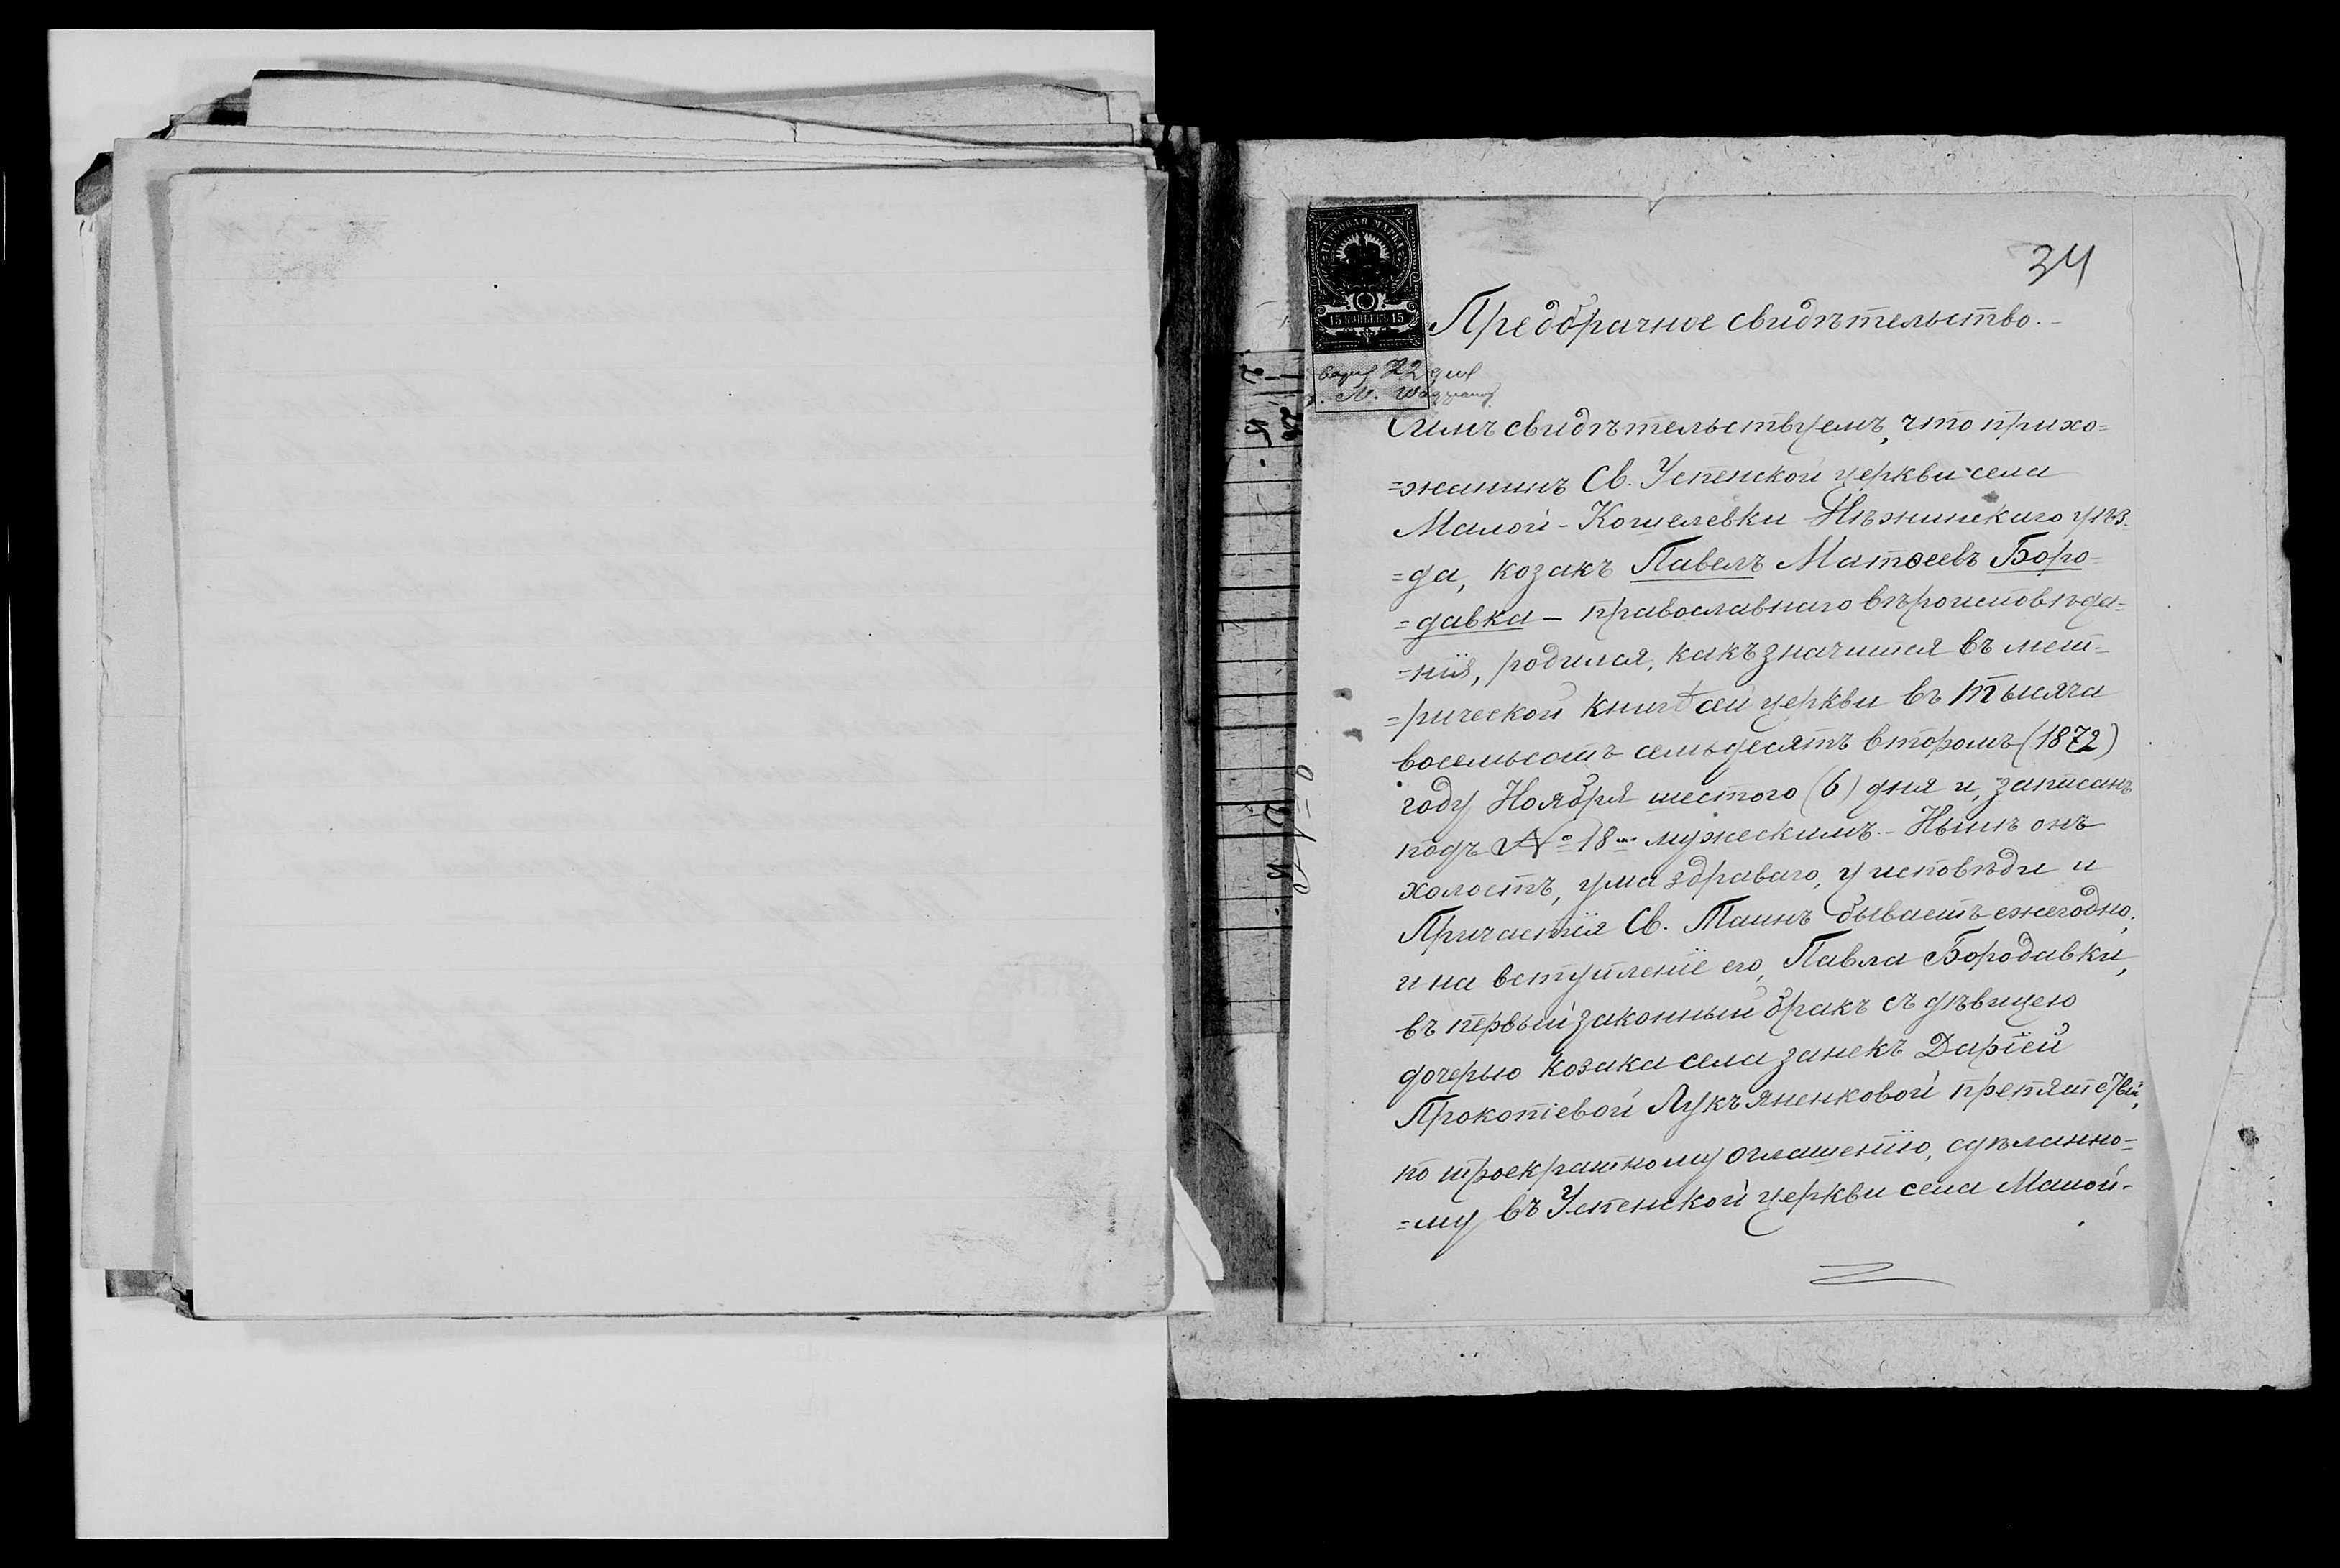 34
ГЕРБОВАЯ МАРКА
15 КОПѢЕКЪ 15
22 дня
Предбрачное свидѣтельство.-
Симъ свидѣтельствуемъ, что прихо=
=жанинъ Св. Успенской церкви села
Малой-Кошелевки Нѣжинскаго уѣз.
=да, козакъ Павелъ Матѳеевъ Боро=
=давка - православнаго вѣроисповѣда=
=нія, родился, какъ значится въ мет=
=рической книгѣ сей церкви въ тысяча
восемьсотъ семьдесятъ второмъ (1872)
году Ноября шестого (6) дня и, записанъ
подъ № 18мъ мужескимъ.- Нынѣ онъ
холостъ, ума здраваго, у исповѣди и
Причастія Св. Таинъ бываетъ ежегодно;
и на вступленіе его, Павла Бородавки,
въ первый законный бракъ съ дѣвицею
дочерью козака села Занекъ Даріей
Прокопіевой Лукъяненковой препятствій,
по троекратному оглашенію, сдѣланно=
=му въ Успенской церкви села Малой-